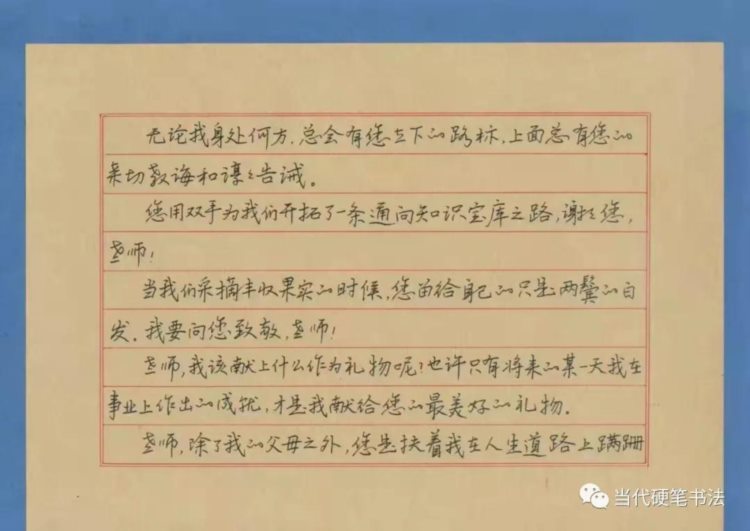 无论我身处何方,总会有您立下的路标,上面总有您的
亲切教诲和谆々告诫。
您用双手为我们开拓了一条通向知识宝库之路,谢々您,
老师!
当我们采摘丰收果实的时候,您留给自己的只是两鬓的白
发。我要向您致敬,老师!
老师,我该献上什么作为礼物呢?也许只有将来的某一天我在
事业上作出的成扰,才是我献给您的最美好的礼物。
老师,除了我的父母之外,您是扶着我在人生道路上蹒跚
当代硬笔书法